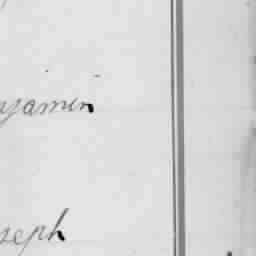 njamin
seph